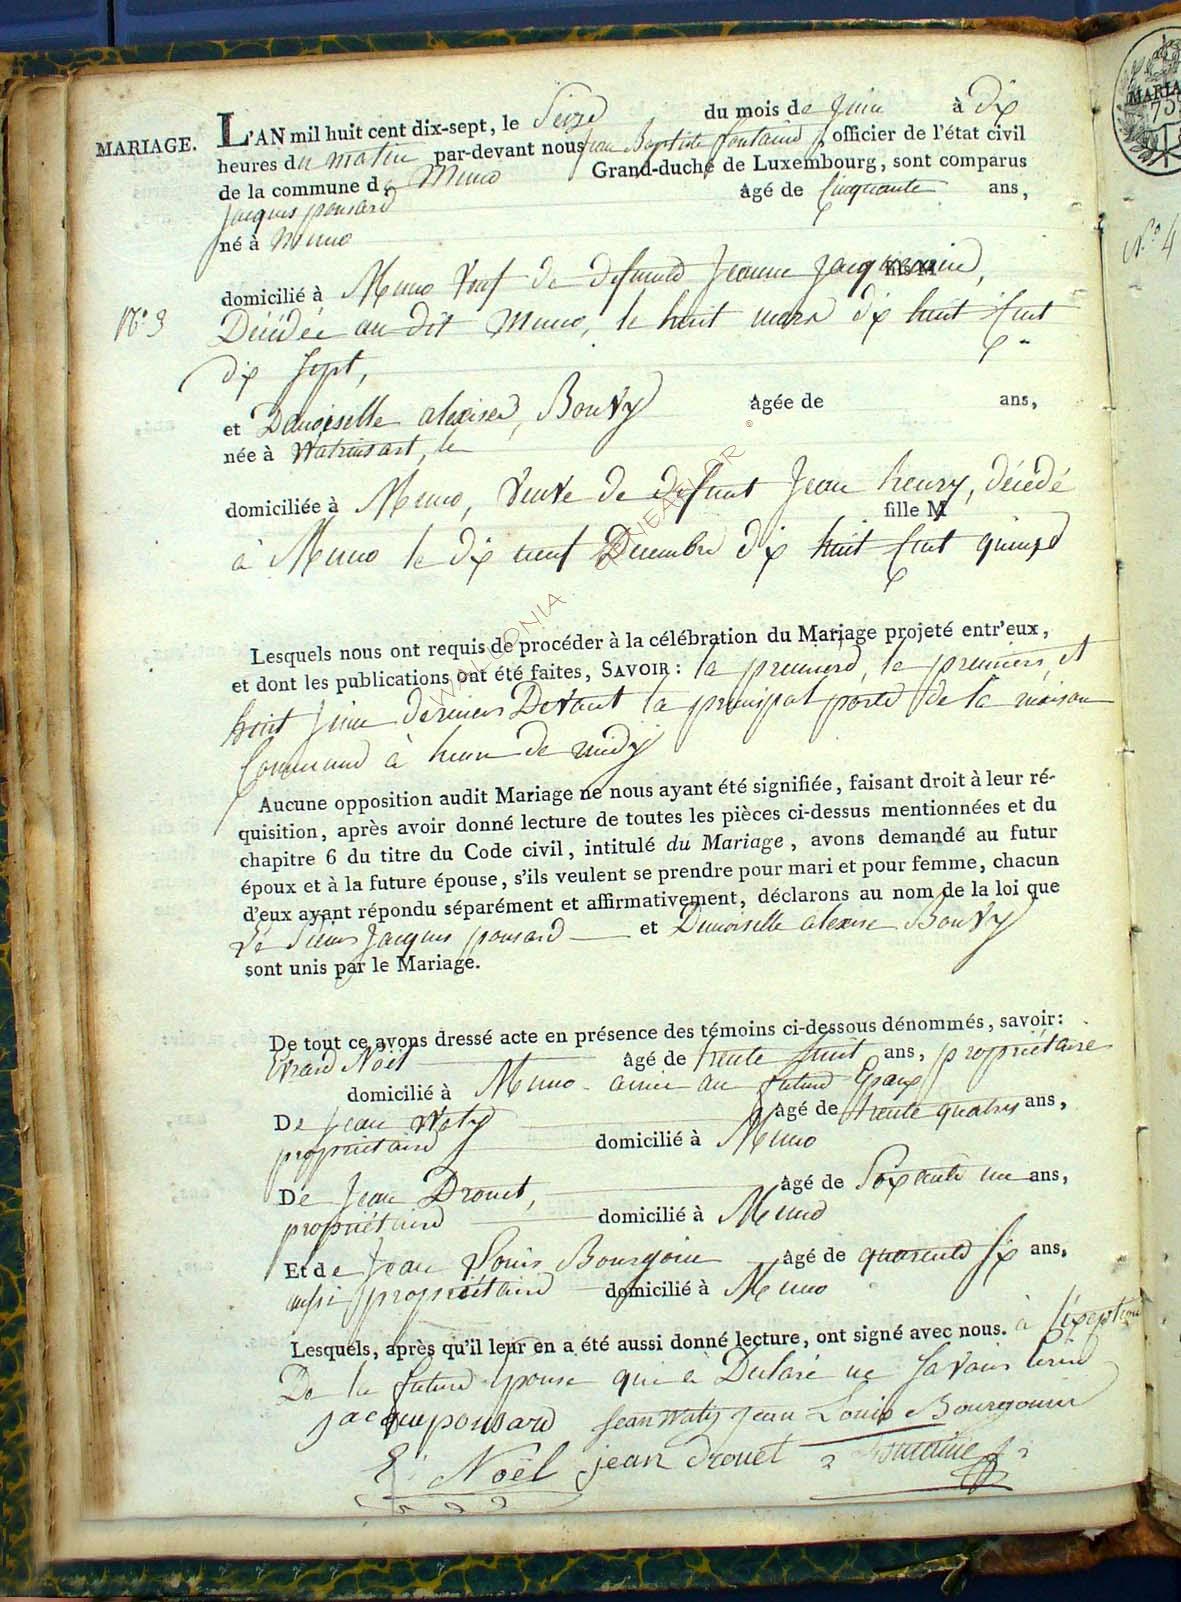 MARIAGE. L'AN mil huit cent dix-sept, le Seize du mois de Juin à dix
heures du matin par-devant nous Jean Baptiste fontaine, officier de l'état civil
de la commune de Muno Grand-duché de Luxembourg, sont comparus
Jacques ponsard âgé de Cinquante ans,
né à Muno
domicilié à Muno Veuf de defunte Jeanne Jacquemin, fils M
N.° 3 Décédée au dit Muno, le huit mars dix huit Cent
dix Sept,
et Demoiselle alexise, Bouvy âgée de ans,
née à Watrinsart, le
domiciliée à Muno, Veuve de defunt Jean henry, décédé
fille M
à Muno le dix neuf Decembre dix huit Cent quinze
Lesquels nous ont requis de procéder à la célébration du Mariage projeté entr'eux,
et dont les publications ont été faites, SAVOIR : la premiere, le premiers, et
huit Juin derniers Devant la principal porte de la maison
Commune à heure de midy
Aucune opposition audit Mariage ne nous ayant été signifiée, faisant droit à leur ré-
quisition, après avoir donné lecture de toutes les pièces ci-dessus mentionnées et du
chapitre 6 du titre du Code civil, intitulé du Mariage, avons demandé au futur
époux et à la future épouse, s'ils veulent se prendre pour mari et pour femme, chacun
d'eux ayant répondu séparément et affirmativement, déclarons au nom de la loi que
Le Sieur Jacques ponsard et Demoiselle alexise Bouvy
sont unis par le Mariage.
De tout ce avons dressé acte en présence des témoins ci-dessous dénommés, savoir :
Evrard Noël âgé de trente huit ans, propriétaire
domicilié à Muno amie au futur Epoux
De Jean Waty âgé de trente quatre ans,
propriétaire domicilié à Muno
De Jean Drouet, âgé de Soixante un ans,
propriétaire domicilié à Muno
Et de Jean Louis Bourgoin âgé de quarente six ans,
aussi propriétaire domicilié à Muno
Lesquels, après qu'il leur en a été aussi donné lecture, ont signé avec nous. à l'exeption
De la future Epouse qui a Declaré ne Savoir
jacque ponsard Jean Waty Jean Louis Bourgoin
E Noël jean drouet fontaine
WALLONIA GENEAFLOR ©
MARIA
N.° 4